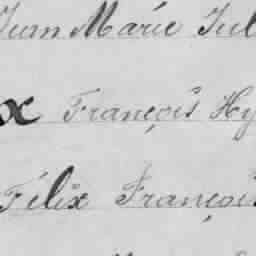 Jean Marie Jul
x François Hy
Félix François